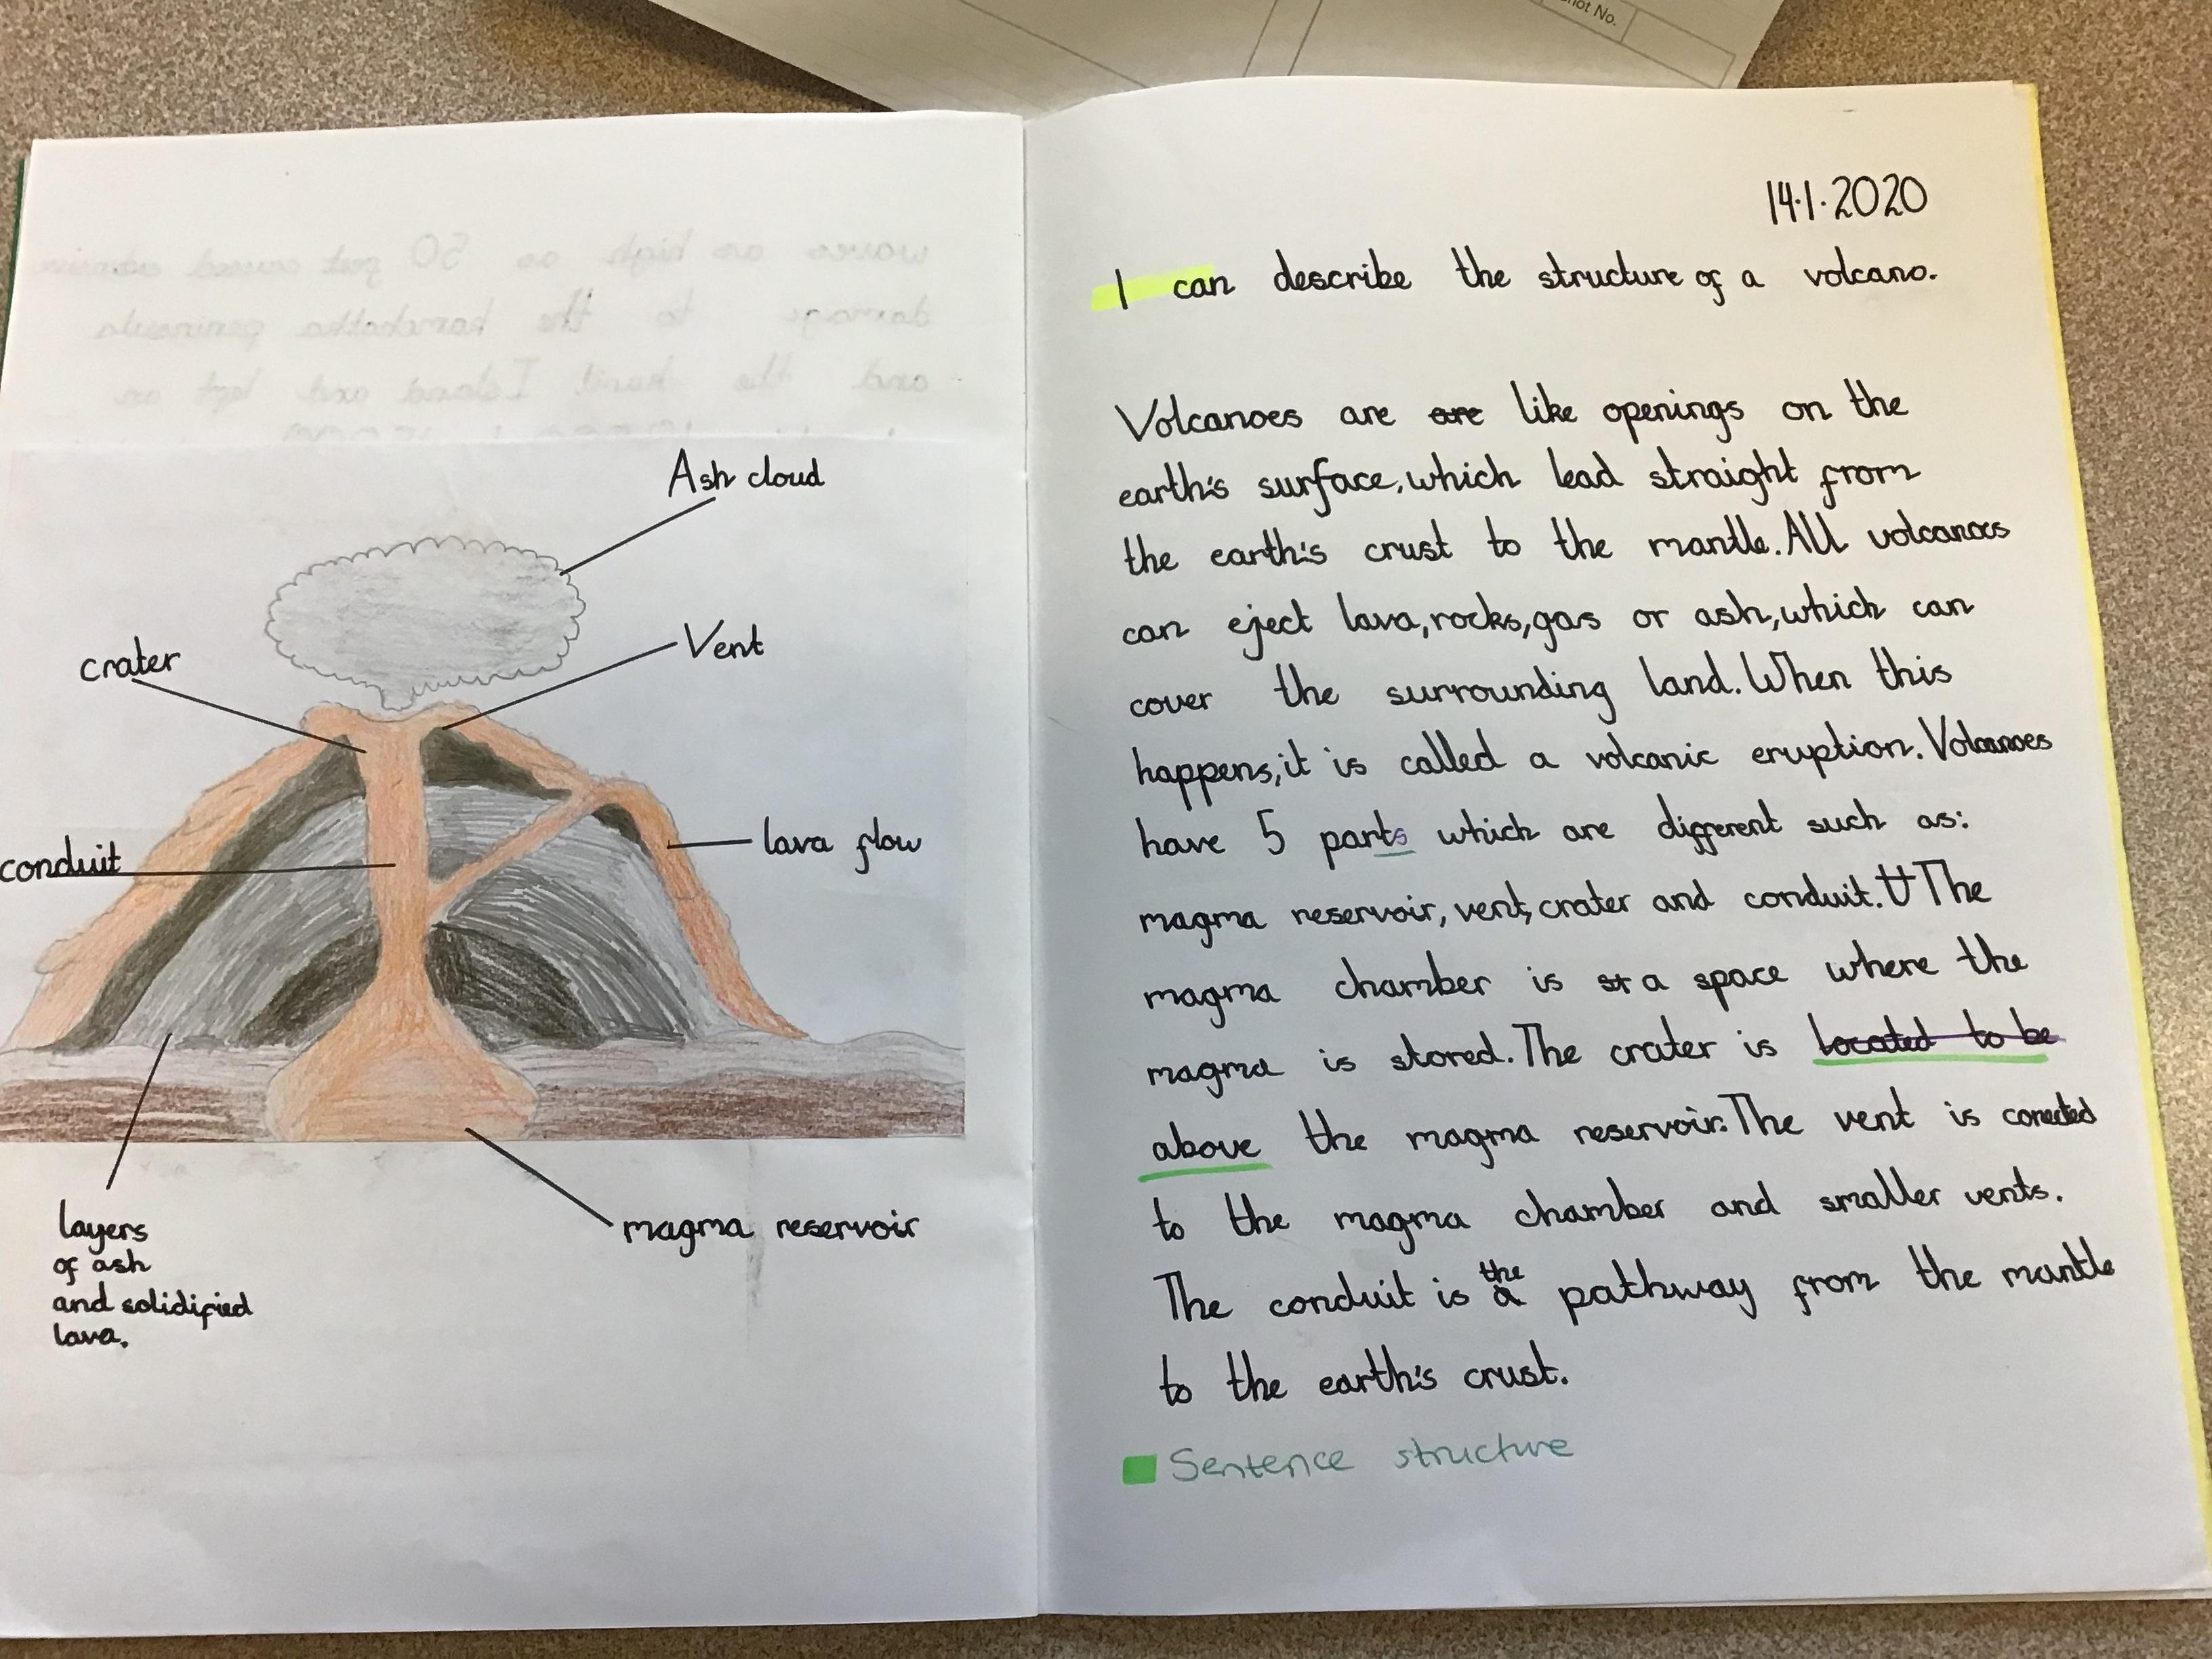 not No.
waves as high as 50 feet caused
damage to the kamchatka peninsula
and the Island and left an
Ash cloud
crater
Vent
conduit
lava flow
layers
of ash
and solidified
lava.
magma reservoir
14.1.2020
I can describe the structure of a volcano.
Volcanoes are are like openings on the
earth's surface, which lead straight from
the earth's crust to the mantle. All volcanoes
can eject lava, rocks, gas or ash, which can
cover the surrounding land. When this
happens, it is called a volcanic eruption. Volcanoes
have 5 parts which are different such as:
magma reservoir, vent, crater and conduit. The
magma chamber is st a space where the
magma is stored. The crater is located to be
above the magma reservoir. The vent is conected
to the magma chamber and smaller vents.
The conduit is a the pathway from the mantle
to the earth's crust.
Sentence structure